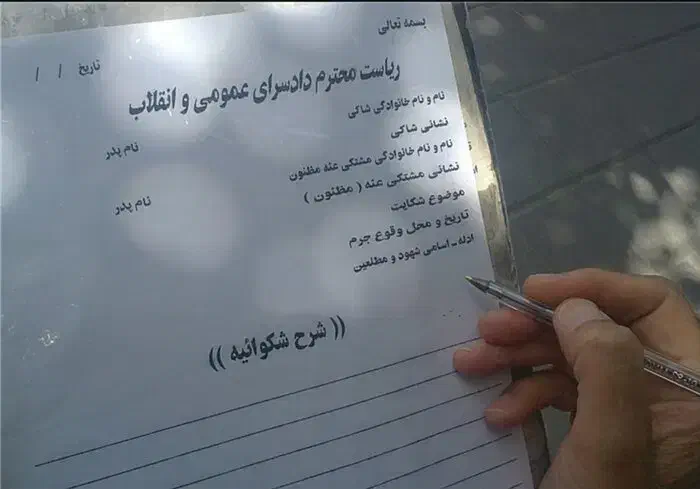 بسمه تعالی
تاریخ / /
ریاست محترم دادسرای عمومی و انقلاب
نام و نام خانوادگی شاکی
نشانی شاکی نام پدر
نام و نام خانوادگی مشتکی عنه مظنون
نشانی مشتکی عنه ( مظنون ) نام پدر
موضوع شکایت
تاریخ و محل وقوع جرم
ادله ـ اسامی شهود و مطلعین
(( شرح شکوائیه ))